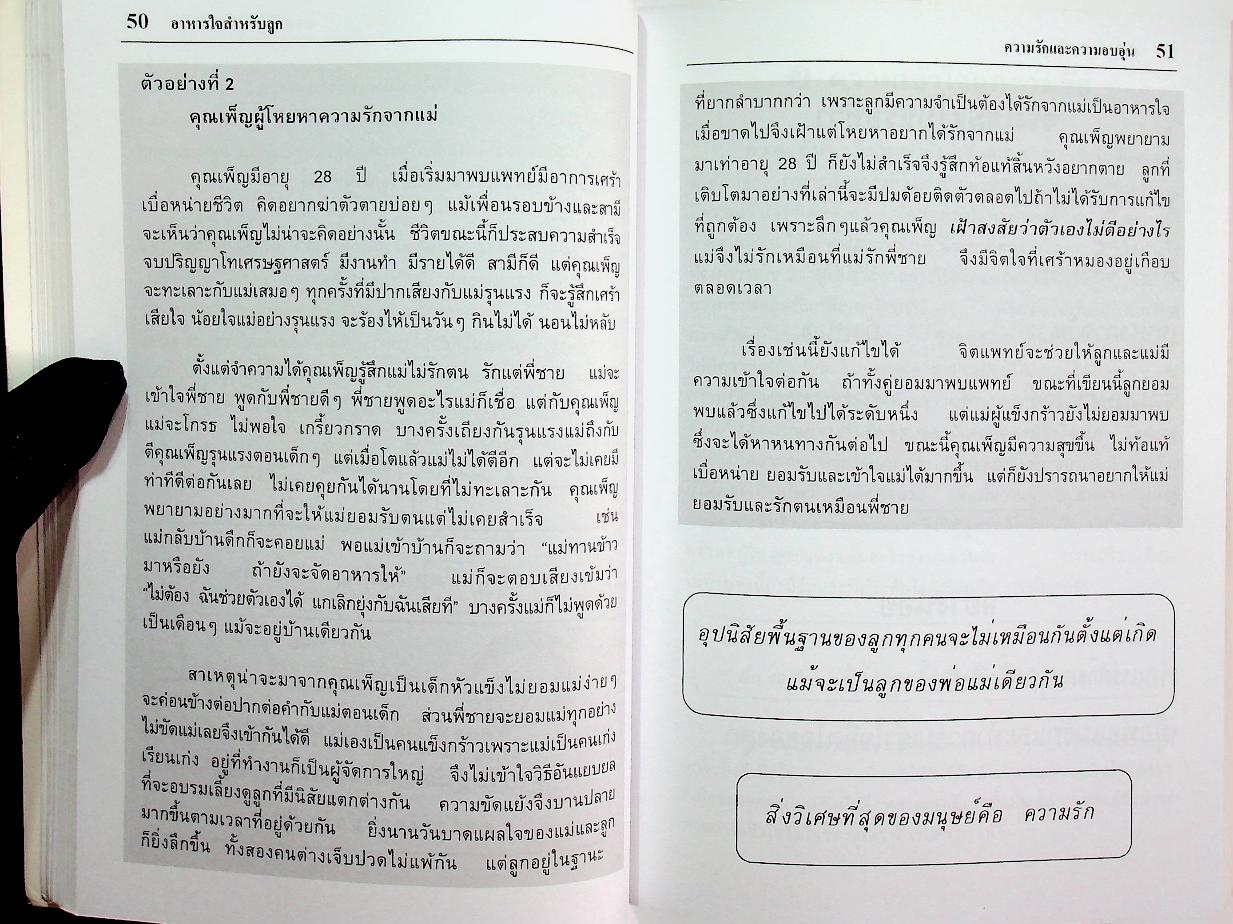 50 อาหารใจสำหรับลูก
ตัวอย่างที่ 2
คุณเพ็ญผู้โหยหาความรักจากแม่
คุณเพ็ญมีอายุ 28 ปี เมื่อเริ่มมาพบแพทย์มีอาการเศร้า
เบื่อหน่ายชีวิต คิดอยากฆ่าตัวตายบ่อยๆ แม้เพื่อนรอบข้างและสามี
จะเห็นว่าคุณเพ็ญไม่น่าจะคิดอย่างนั้น ชีวิตขณะนี้ก็ประสบความสำเร็จ
จบปริญญาโทเศรษฐศาสตร์ มีงานทำ มีรายได้ดี สามีก็ดี แต่คุณเพ็ญ
จะทะเลาะกับแม่เสมอๆ ทุกครั้งที่มีปากเสียงกับแม่รุนแรง ก็จะรู้สึกเศร้า
เสียใจ น้อยใจแม่อย่างรุนแรง จะร้องไห้เป็นวันๆ กินไม่ได้ นอนไม่หลับ
ตั้งแต่จำความได้คุณเพ็ญรู้สึกแม่ไม่รักตน รักแต่พี่ชาย แม่จะ
เข้าใจพี่ชาย พูดกับพี่ชายดีๆ พี่ชายพูดอะไรแม่ก็เชื่อ แต่กับคุณเพ็ญ
แม่จะโกรธ ไม่พอใจ เกรี้ยวกราด บางครั้งเถียงกันรุนแรงแม่ถึงกับ
ตีคุณเพ็ญรุนแรงตอนเด็กๆ แต่เมื่อโตแล้วแม่ไม่ได้ตีอีก แต่จะไม่เคยมี
ท่าทีดีต่อกันเลย ไม่เคยคุยกันได้นานโดยที่ไม่ทะเลาะกัน คุณเพ็ญ
พยายามอย่างมากที่จะให้แม่ยอมรับตนแต่ไม่เคยสำเร็จ เช่น
แม่กลับบ้านดึกก็จะคอยแม่ พอแม่เข้าบ้านก็จะถามว่า "แม่ทานข้าว
มาหรือยัง ถ้ายังจะจัดอาหารให้" แม่ก็จะตอบเสียงเข้มว่า
"ไม่ต้อง ฉันช่วยตัวเองได้ แกเลิกยุ่งกับฉันเสียที" บางครั้งแม่ก็ไม่พูดด้วย
เป็นเดือนๆ แม้จะอยู่บ้านเดียวกัน
สาเหตุน่าจะมาจากคุณเพ็ญเป็นเด็กหัวแข็งไม่ยอมแม่ง่ายๆ
จะค่อนข้างต่อปากต่อคำกับแม่ตอนเด็ก ส่วนพี่ชายจะยอมแม่ทุกอย่าง
ไม่ขัดแม่เลยจึงเข้ากันได้ดี แม่เองเป็นคนแข็งกร้าวเพราะแม่เป็นคนเก่ง
เรียนเก่ง อยู่ที่ทำงานก็เป็นผู้จัดการใหญ่ จึงไม่เข้าใจวิธีอันแยบยล
ที่จะอบรมเลี้ยงดูลูกที่มีนิสัยแตกต่างกัน ความขัดแย้งจึงบานปลาย
มากขึ้นตามเวลาที่อยู่ด้วยกัน ยิ่งนานวันบาดแผลใจของแม่และลูก
ก็ยิ่งลึกขึ้น ทั้งสองคนต่างเจ็บปวดไม่แพ้กัน แต่ลูกอยู่ในฐานะ
ความรักและความอบอุ่น 51
ที่ยากลำบากกว่า เพราะลูกมีความจำเป็นต้องได้รักจากแม่เป็นอาหารใจ
เมื่อขาดไปจึงเฝ้าแต่โหยหาอยากได้รักจากแม่ คุณเพ็ญพยายาม
มาเท่าอายุ 28 ปี ก็ยังไม่สำเร็จจึงรู้สึกท้อแท้สิ้นหวังอยากตาย ลูกที่
เติบโตมาอย่างที่เล่านี้จะมีปมด้อยติดตัวตลอดไปถ้าไม่ได้รับการแก้ไข
ที่ถูกต้อง เพราะลึกๆแล้วคุณเพ็ญ เฝ้าสงสัยว่าตัวเองไม่ดีอย่างไร
แม่จึงไม่รักเหมือนที่แม่รักพี่ชาย จึงมีจิตใจที่เศร้าหมองอยู่เกือบ
ตลอดเวลา
เรื่องเช่นนี้ยังแก้ไขได้ จิตแพทย์จะช่วยให้ลูกและแม่มี
ความเข้าใจต่อกัน ถ้าทั้งคู่ยอมมาพบแพทย์ ขณะที่เขียนนี้ลูกยอม
พบแล้วซึ่งแก้ไขไปได้ระดับหนึ่ง แต่แม่ผู้แข็งกร้าวยังไม่ยอมมาพบ
ซึ่งจะได้หาหนทางกันต่อไป ขณะนี้คุณเพ็ญมีความสุขขึ้น ไม่ท้อแท้
เบื่อหน่าย ยอมรับและเข้าใจแม่ได้มากขึ้น แต่ก็ยังปรารถนาอยากให้แม่
ยอมรับและรักตนเหมือนพี่ชาย
อุปนิสัยพื้นฐานของลูกทุกคนจะไม่เหมือนกันตั้งแต่เกิด
แม้จะเป็นลูกของพ่อแม่เดียวกัน
สิ่งวิเศษที่สุดของมนุษย์คือ ความรัก